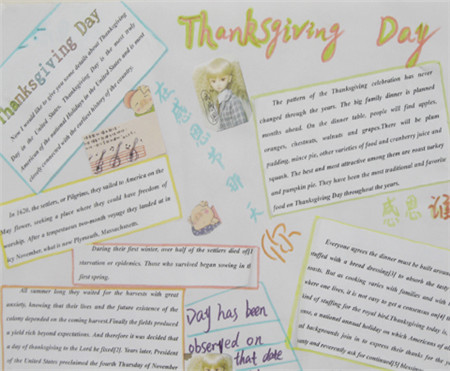 Thanksgiving Day
Thanksgiving Day
Now I would like to give you some details about Thanksgiving
Day in the United States. Thanksgiving Day is the most truly
American of the national Holidays in the United States and is most
closely connected with the earliest history of the country.
在感恩节那天
The pattern of the Thanksgiving celebration has never
changed through the years. The big family dinner is planned
months ahead. On the dinner table, people will find apples,
oranges, chestnuts, walnuts and grapes.There will be plum
pudding, mince pie, other varieties of food and cranberry juice and
squash. The best and most attractive among them are roast turkey
and pumpkin pie. They have been the most traditional and favorite
food on Thanksgiving Day throughout the years.
In 1620, the settlers, or Pilgrims, they sailed to America on the
May flower, seeking a place where they could have freedom of
worship. After a tempestuous two-month voyage they landed at in
icy November, what is now Plymouth, Massachusetts.
During their first winter, over half of the settlers died of
starvation or epidemics. Those who survived began sowing in the
first spring.
All summer long they waited for the harvests with great
anxiety, knowing that their lives and the future existence of the
colony depended on the coming harvest.Finally the fields produced
a yield rich beyond expectations. And therefore it was decided that
a day of thanksgiving to the Lord be fixed[2]. Years later, President
of the United States proclaimed the fourth Thursday of November
你
感恩谁
Day has been
observed on
that date
Everyone agrees the dinner must be built around
stuffed with a bread dressing[3] to absorb the tasty
roasts. But as cooking varies with families and with
where one lives, it is not easy to get a consensus on[4]
kind of stuffing for the royal bird.Thanksgiving today is,
case, a national annual holiday on which Americans of all
backgrounds join in to express their thanks for the
and reverently ask for continued[5] blessings